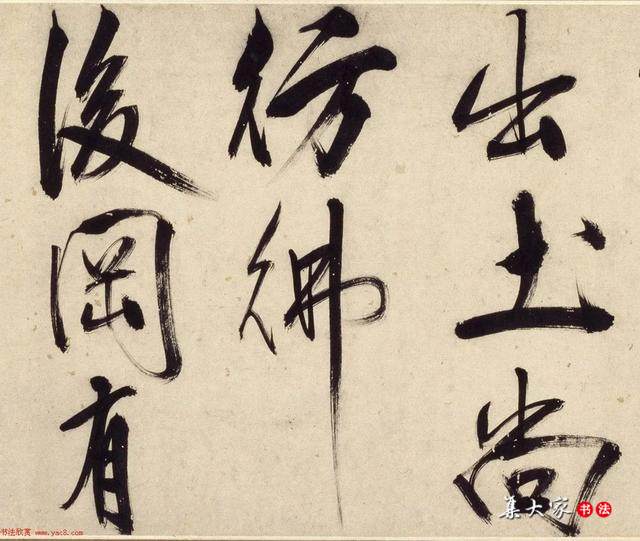 出土尚
彷彿
後岡有
集大家书法
书法欣赏 www.yac8.com